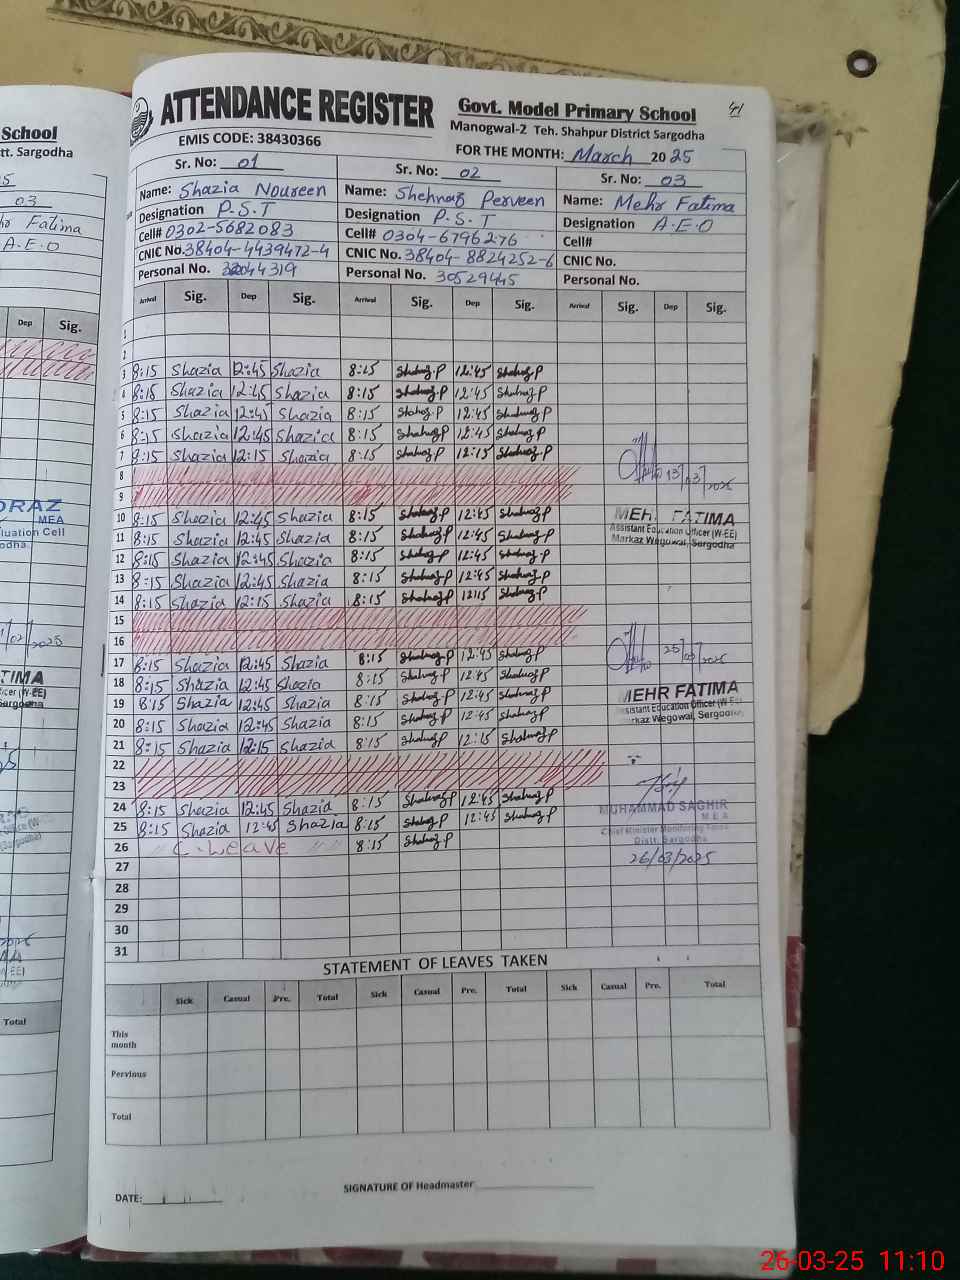 School
tt. Sargodha
03
Fatima
A.E.O
Dep Sig.
MEA
2025
Total
41
ATTENDANCE REGISTER
Govt. Model Primary School
Manogwal-2 Teh. Shahpur District Sargodha
EMIS CODE: 38430366
FOR THE MONTH: March 2025
Sr. No: 01 Sr. No: 02 Sr. No: 03
Name: Shazia Noureen Name: Shehnaz Perveen Name: Mehr Fatima
Designation P.S.T Designation P.S.T Designation A.E.O
Cell# 0302-5682083 Cell# 0304-6796276 Cell#
CNIC No. 38404-4439472-4 CNIC No. 38404-8824252-6 CNIC No.
Personal No. 32044319 Personal No. 30529445 Personal No.
Arrival Sig. Dep Sig. Arrival Sig. Dep Sig. Arrival Sig. Dep Sig.
1
2
3 8:15 Shazia 12:45 Shazia 8:15 Shehnaz.P 12:45 Shehnaz.P
4 8:15 Shazia 12:45 Shazia 8:15 Shehnaz.P 12:45 Shehnaz.P
5 8:15 Shazia 12:45 Shazia 8:15 Shehnaz.P 12:45 Shehnaz.P
6 8:15 Shazia 12:45 Shazia 8:15 Shehnaz.P 12:45 Shehnaz.P
7 8:15 Shazia 12:15 Shazia 8:15 Shehnaz.P 12:15 Shehnaz.P
8
13/03/2025
9
10 8:15 Shazia 12:45 Shazia 8:15 Shehnaz.P 12:45 Shehnaz.P
MEHR FATIMA
Assistant Education Officer (W-EE)
Markaz Wegowal, Sargodha
11 8:15 Shazia 12:45 Shazia 8:15 Shehnaz.P 12:45 Shehnaz.P
12 8:15 Shazia 12:45 Shazia 8:15 Shehnaz.P 12:45 Shehnaz.P
13 8:15 Shazia 12:45 Shazia 8:15 Shehnaz.P 12:45 Shehnaz.P
14 8:15 Shazia 12:15 Shazia 8:15 Shehnaz.P 12:15 Shehnaz.P
15
16
17 8:15 Shazia 12:45 Shazia 8:15 Shehnaz.P 12:45 Shehnaz.P
25/03/2025
18 8:15 Shazia 12:45 Shazia 8:15 Shehnaz.P 12:45 Shehnaz.P
MEHR FATIMA
Assistant Education Officer (W-EE)
Markaz Wegowal, Sargodha
19 8:15 Shazia 12:45 Shazia 8:15 Shehnaz.P 12:45 Shehnaz.P
20 8:15 Shazia 12:45 Shazia 8:15 Shehnaz.P 12:45 Shehnaz.P
21 8:15 Shazia 12:15 Shazia 8:15 Shehnaz.P 12:15 Shehnaz.P
22
23
24 8:15 Shazia 12:45 Shazia 8:15 Shehnaz.P 12:45 Shehnaz.P
MUHAMMAD SAGHIR
M E A
Chief Minister Monitoring Force
Distt. Sargodha
26/03/2025
25 8:15 Shazia 12:45 Shazia 8:15 Shehnaz.P 12:45 Shehnaz.P
26 " C. Leave " " 8:15 Shehnaz.P
27
28
29
30
31
STATEMENT OF LEAVES TAKEN
Sick Casual Pre. Total Sick Casual Pre. Total Sick Casual Pre. Total
This month
Pervious
Total
DATE:
SIGNATURE OF Headmaster
26-03-25 11:10